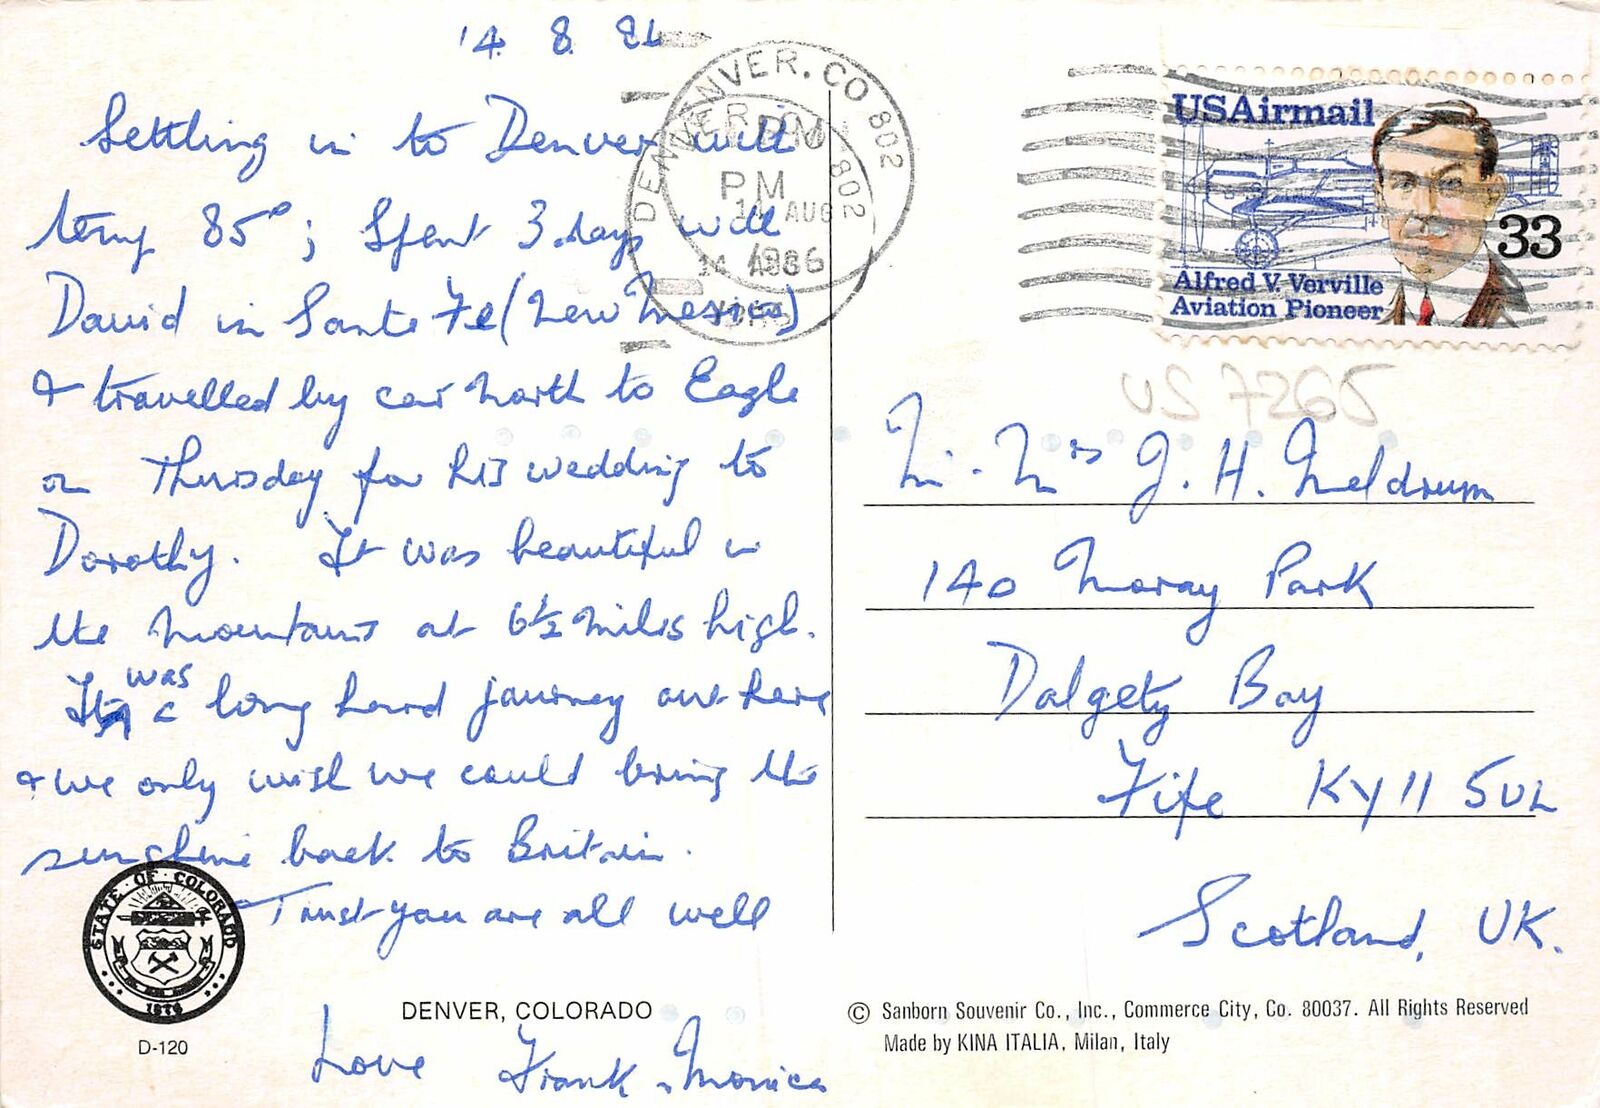 14. 8. 86
Settling in to Denver with
temp 85°; Spent 3 days with
David in Sante Fe (New Mexico)
& travelled by car North to Eagle
on Thursday for his wedding to
Dorothy. It was beautiful in
the mountains at 6½ miles high.
It was a long hard journey out here
& we only wish we could bring the
sunshine back to Britain.
Trust you are all well
Love Frank & Monica
STATE OF COLORADO
1876
D-120
DENVER, COLORADO
DENVER, CO 802
PM
14 AUG
1986
USAirmail
33
Alfred V. Verville
Aviation Pioneer
US 7265
Mr. Mrs J. H. Meldrum
140 Moray Park
Dalgety Bay
Fife KY11 5UL
Scotland, UK.
© Sanborn Souvenir Co., Inc., Commerce City, Co. 80037. All Rights Reserved
Made by KINA ITALIA, Milan, Italy